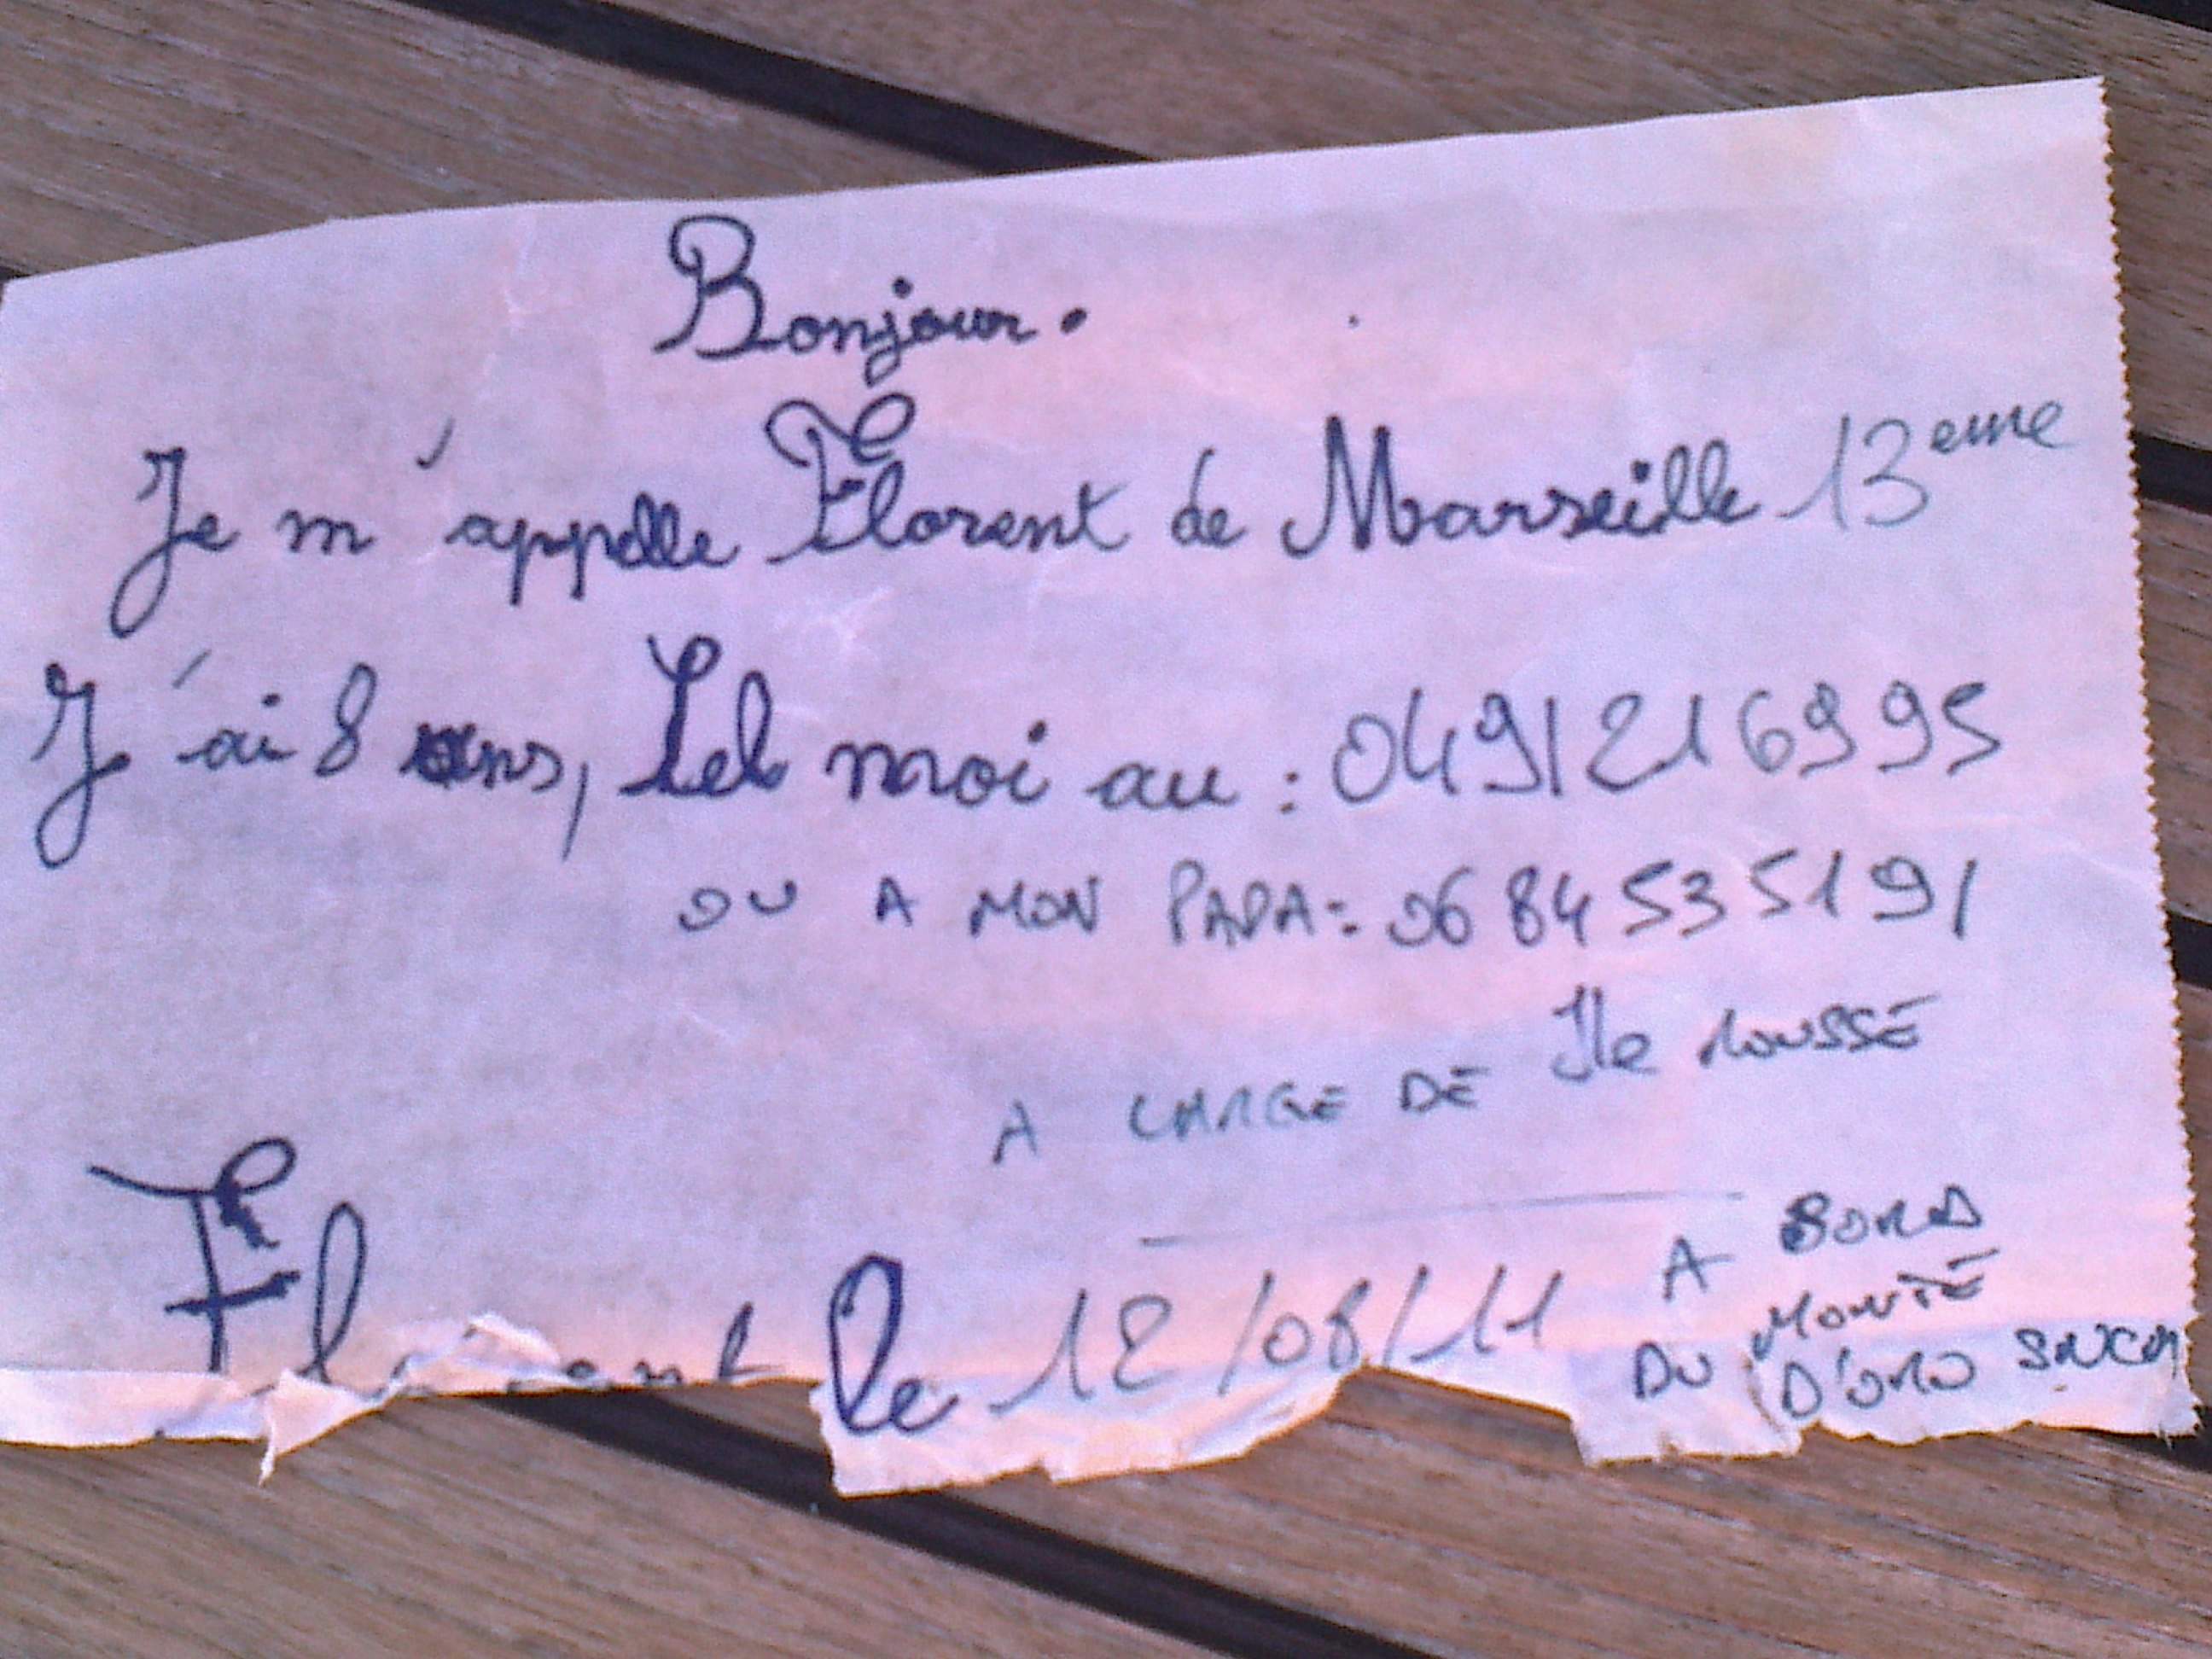 Bonjour.
Je m'appelle Florent de Marseille 13eme
J'ai 8 ans, Tel moi au : 0491216995
OU A MON PAPA : 06 84 53 51 91
A LARGE DE Ile ROUSSE
Florent le 12/08/11
A BORD
DU MONTE
D'ORO SNCM